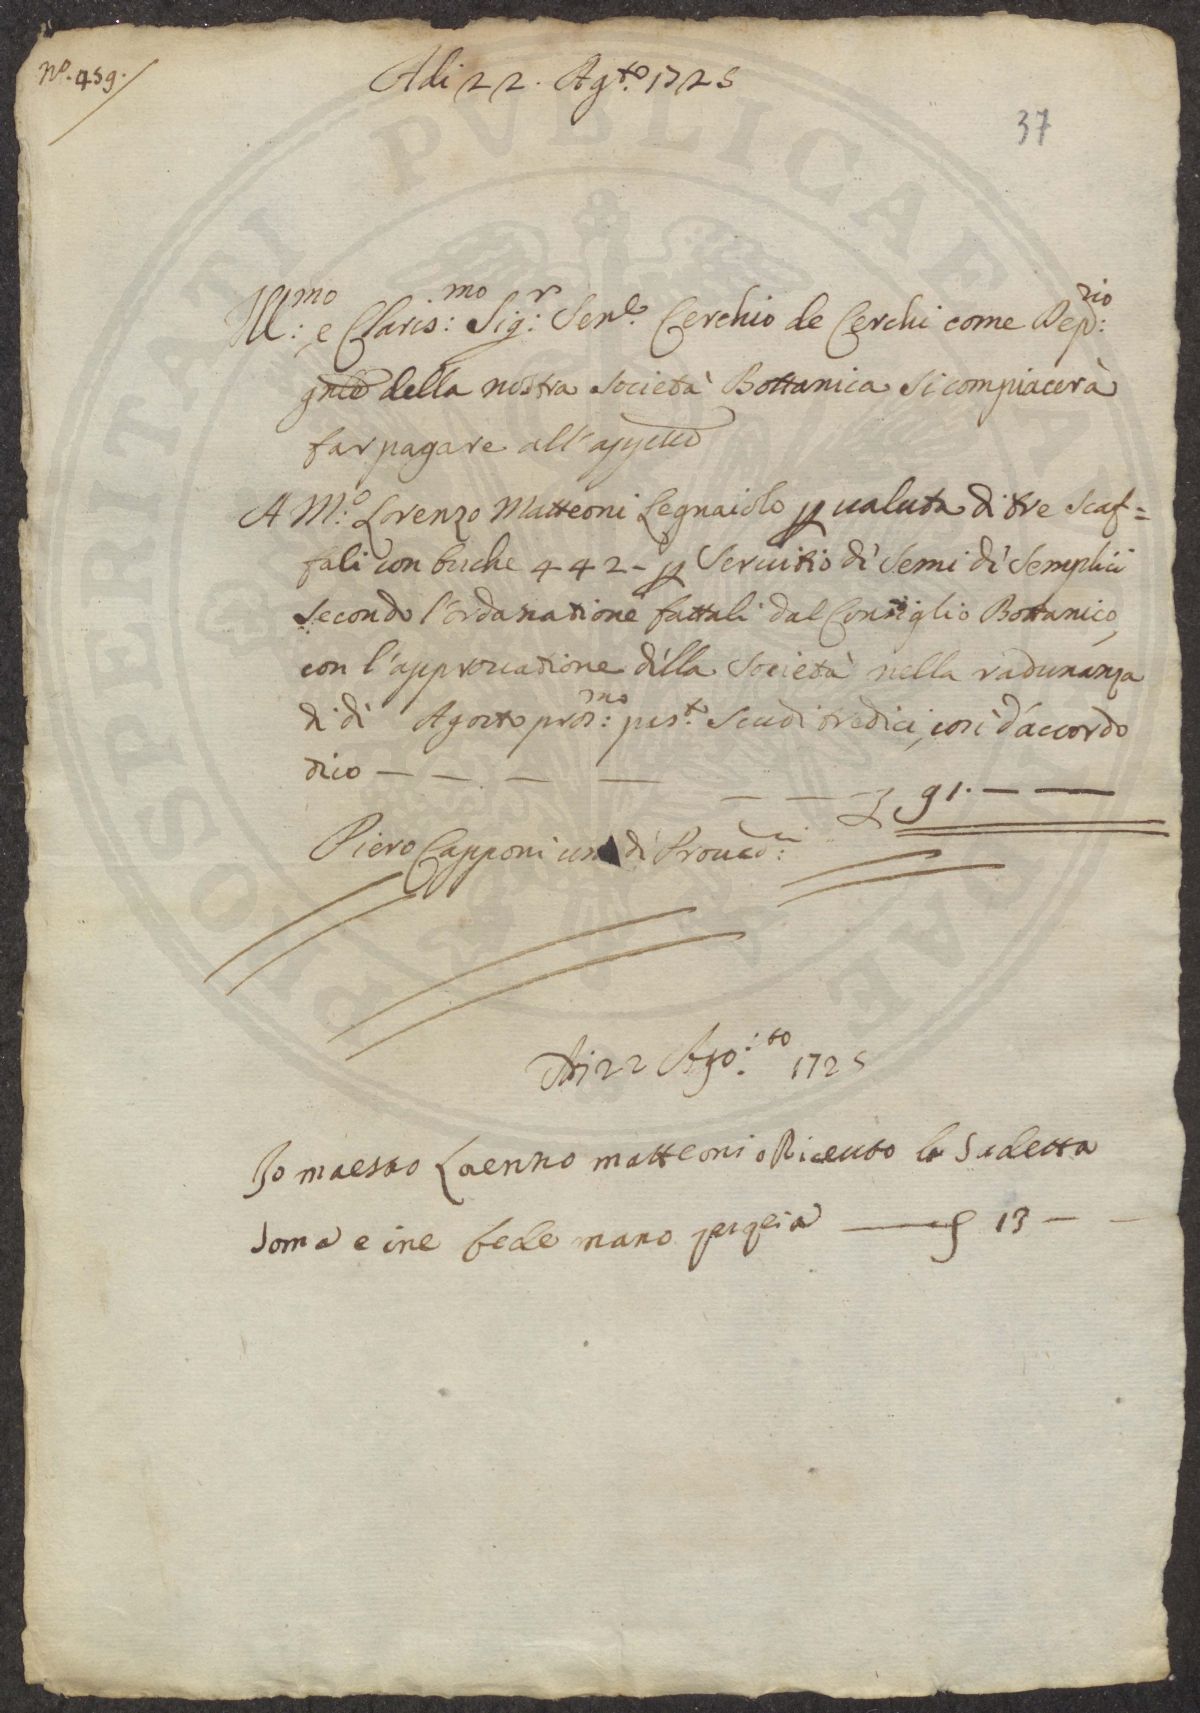 N.º 459.
Adi 22. Ag.to 1725
37
Ill:mo e Claris:mo Sig:r Sen.e Cerchio de Cerchi come Dep:rio
gnle della nostra Società Bottanica si compiacerà
far pagare all'appiè
A M:o Lorenzo Matteoni Legnaiolo p valuta di tre scaf=
fali con buche 442 - p servitio di semi di semplici
secondo l'ordanatione fattali dal Consiglio Bottanico,
con l'approvatione della Società nella radunanza
di di Agosto pros:mo pas.to Scudi tredici, così d'accordo
dico — — — — — — 91. — —
Piero Capponi uno di Proued:i
Adi 22 Ago:to 1725
Io maesto Loenzo matteoni o Riceuto la Sudetta
soma e ine fede mano propia — 13 — —
PIOSPERITATI PVBLICAE